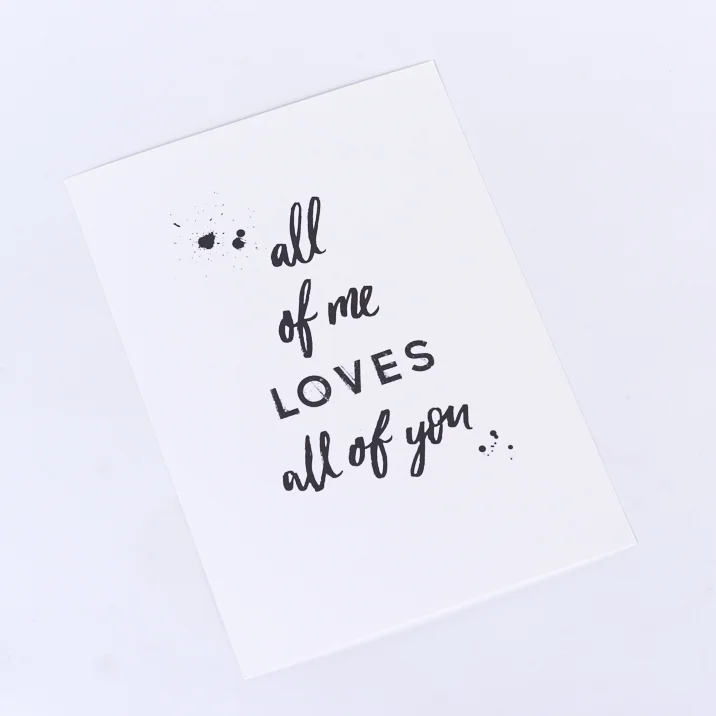 all
of me
LOVES
all of you